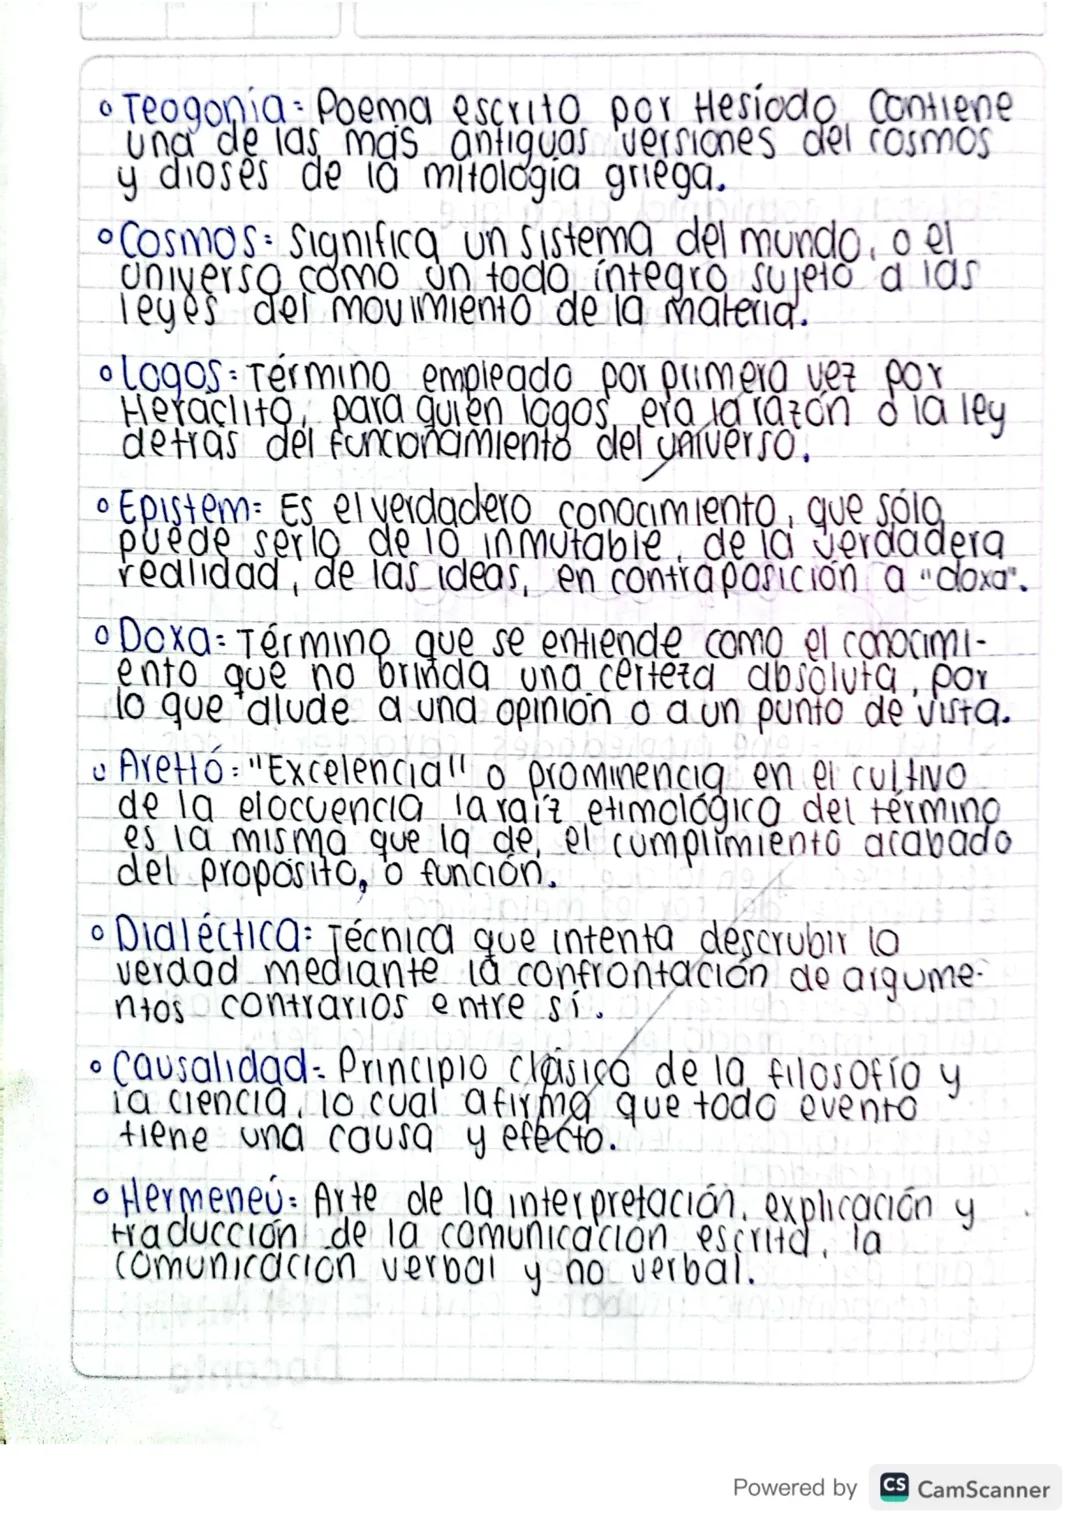 ° Teogonía: Poema escrito por Hesíodo. Contiene
una de las más antiguas versiones del cosmos
y dioses de la mitología griega.
° Cosmos: Significa un sistema del mundo, o el
universo como un todo íntegro sujeto a las
leyes del movimiento de la materia.
° Logos: Término empleado por primera vez por
Heráclito, para quién logos era la razón o la ley
detrás del funcionamiento del universo.
° Epistem: Es el verdadero conocimiento, que sólo
puede serlo de lo inmutable, de la verdadera
realidad, de las ideas, en contraposición a "doxa".
° Doxa: Término que se entiende como el conocimi-
ento que no brinda una certeza absoluta, por
lo que alude a una opinión o a un punto de vista.
° Arettó: "Excelencia" o prominencia en el cultivo
de la elocuencia la raíz etimológica del término
es la misma que la de, el cumplimiento acabado
del propósito, o función.
° Dialéctica: Técnica que intenta descrubir la
verdad mediante la confrontación de argume-
ntos contrarios entre sí.
° Causalidad: Principio clásico de la filosofía y
la ciencia, lo cual afirma que todo evento
tiene una causa y efecto.
° Hermeneú: Arte de la interpretación, explicación y
traducción de la comunicación escrita, la
comunicación verbal y no verbal.
Powered by CS CamScanner